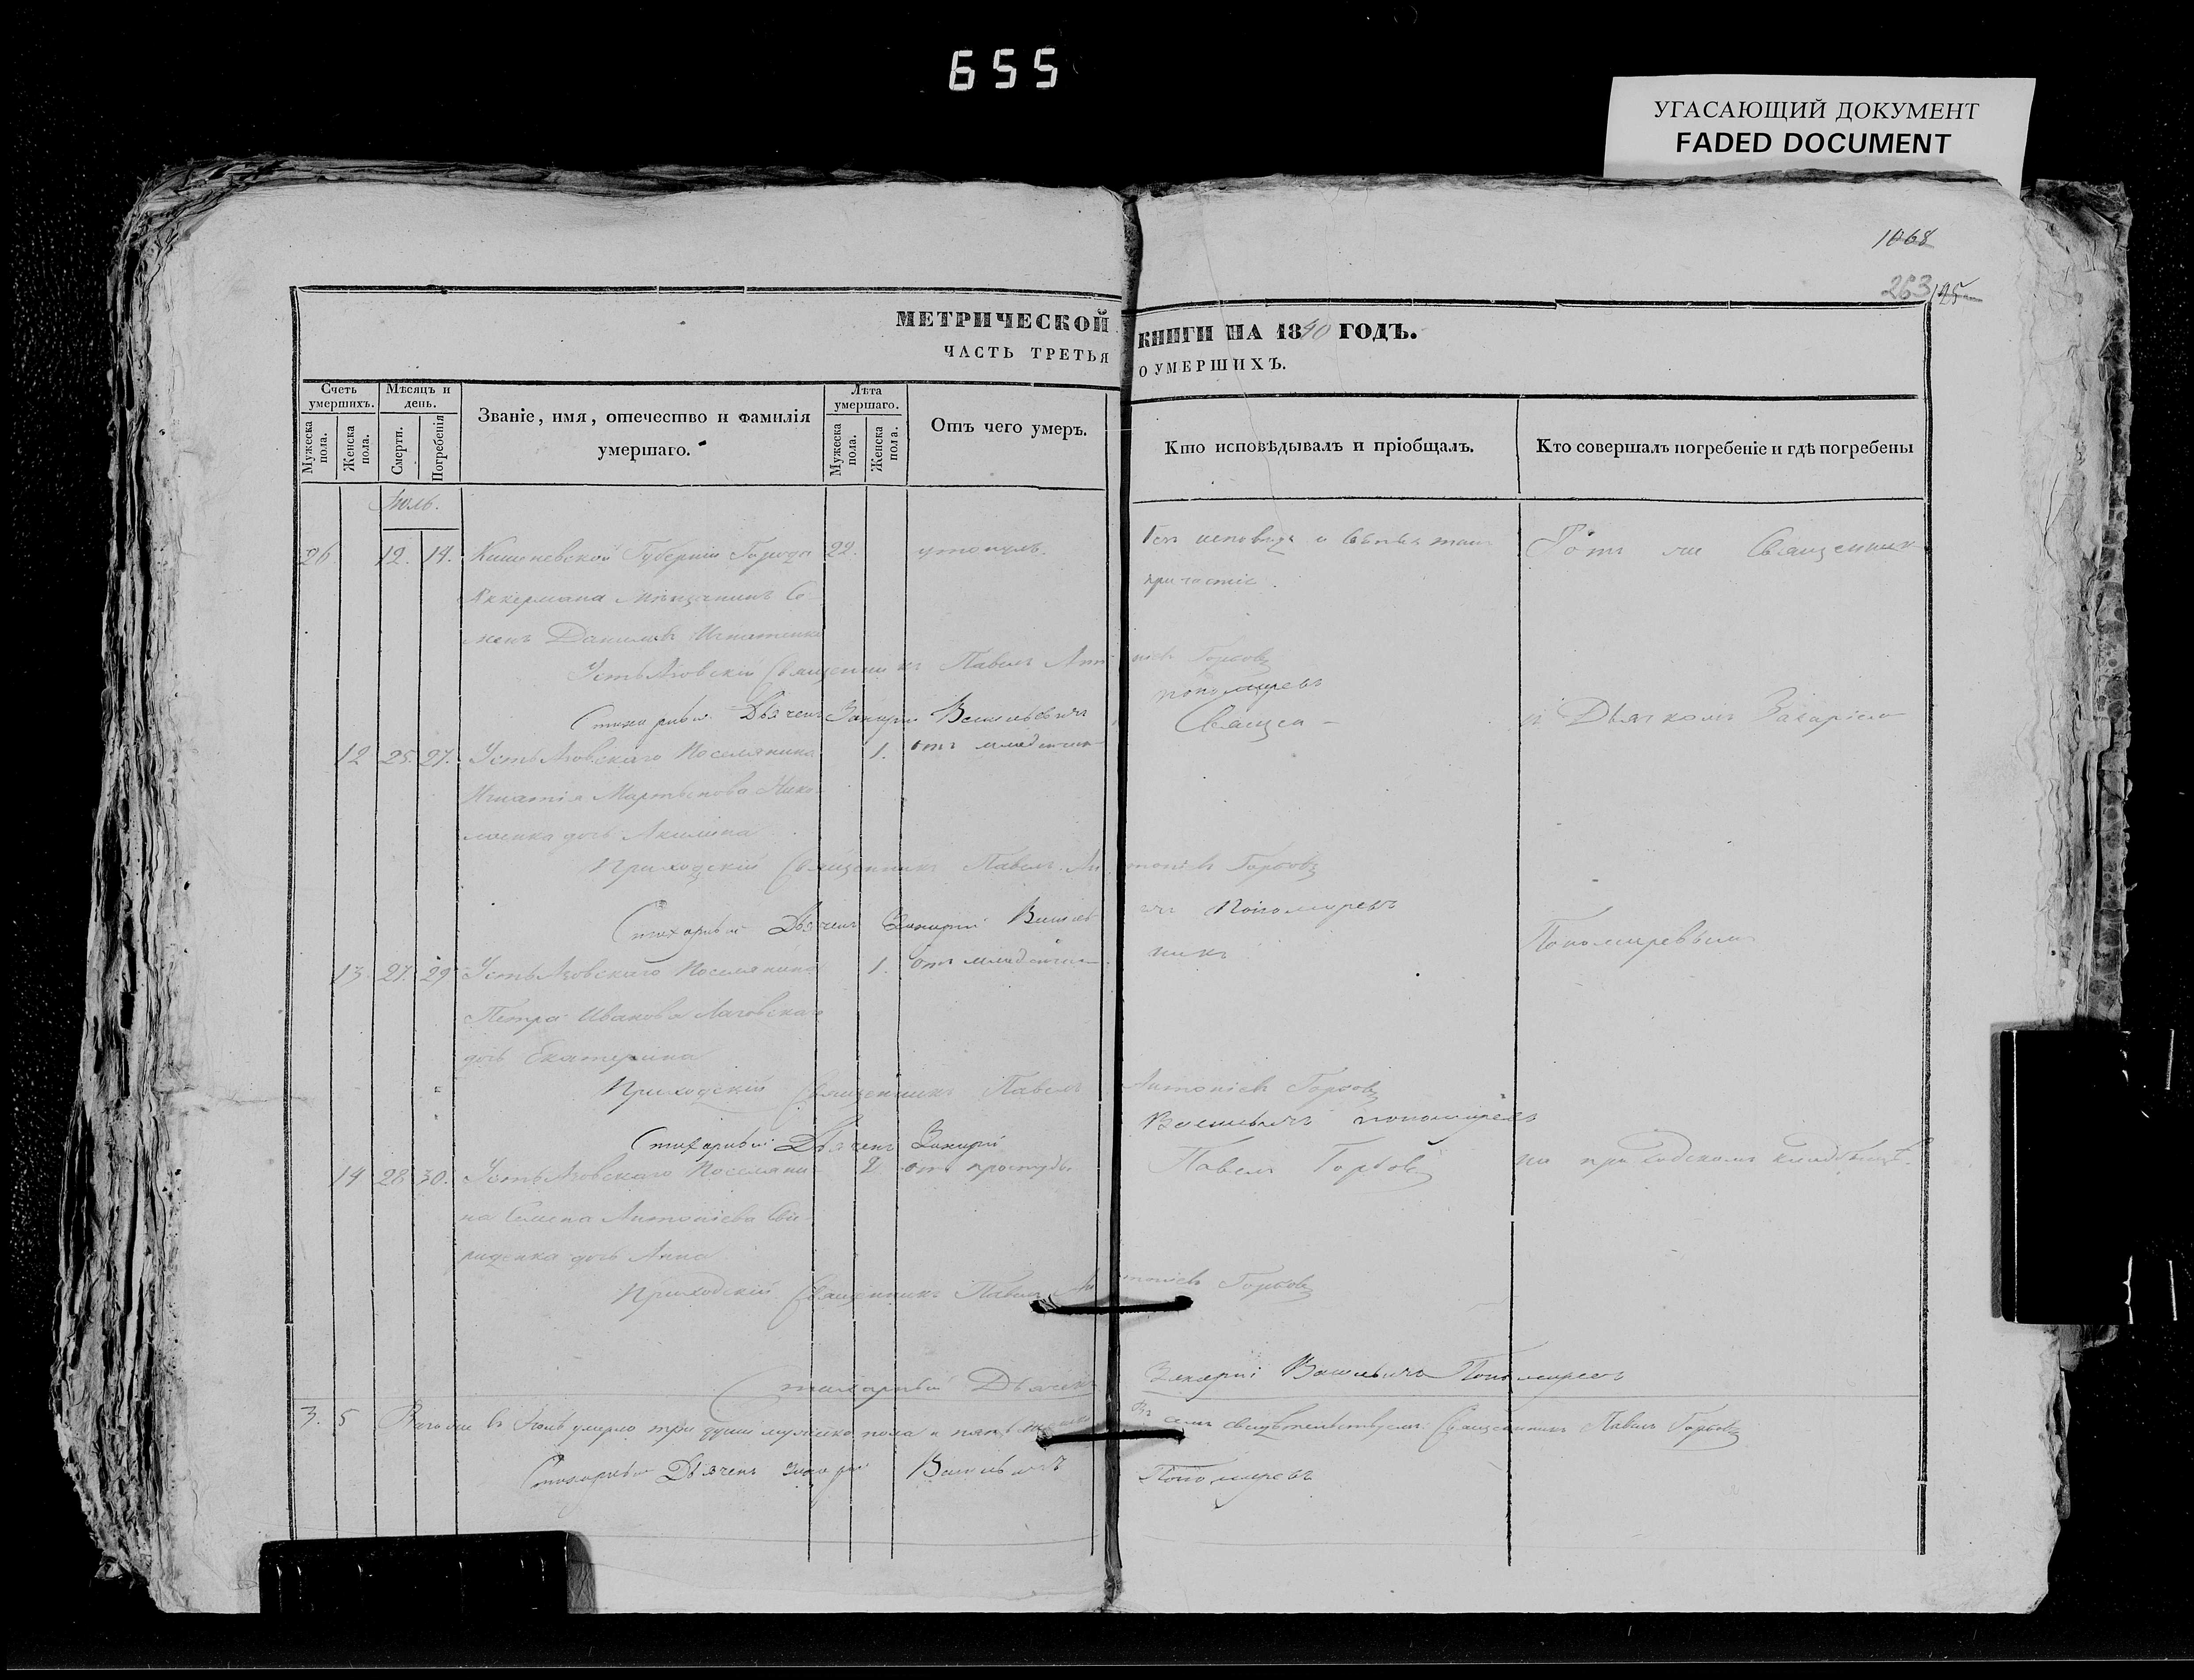 655
УГАСАЮЩИЙ ДОКУМЕНТ
FADED DOCUMENT
1068
263 125
МЕТРИЧЕСКОЙ КНИГИ НА 1840 ГОДЪ.
ЧАСТЬ ТРЕТЬЯ О УМЕРШИХЪ.
Счетъ умершихъ.
Мужеска пола.
Женска пола.
Мѣсяцъ и день.
Смерти.
Погребенія
Званіе, имя, отечество и фамилія умершаго.
Лѣта умершаго.
Мужеска пола.
Женска пола.
Отъ чего умеръ.
Кто исповѣдывалъ и пріобщалъ.
Кто совершалъ погребеніе и гдѣ погребены
Іюль.
26 12. 14. Кишеневской Губерніи Города 22. утонулъ. Безъ исповѣди и святыхъ таин Тотъ же Священник
Аккермана Мѣщанинъ Се- причастіе.
менъ Даниловъ Игнатенко
Усть Азовскій Священникъ Павелъ Антоніевъ Горбовъ
Стихарный Дьячекъ Захарій Васильевичъ Пономаревъ
12 25. 27. Усть Азовскаго Поселянина 1. отъ младенческ Священ- и Дьячкомъ Захаріем
Игнатія Мартынова Нико-
лаенка дочь Акилина
Приходскій Священникъ Павелъ Антоніевъ Горбовъ
Стихарный Дьячекъ Захарій Васильевичъ Пономаревъ
13. 27. 29 Усть Азовскаго Поселянина 1. отъ младенческ никъ Пономаревымъ
Петра Иванова Лаговскаго
дочь Екатерина
Приходскій Священникъ Павелъ Антоніевъ Горбовъ
Стихарный Дьячекъ Захарій Васильевичъ Пономаревъ
14 28. 30. Усть Азовскаго Поселяни- 2 отъ простуды Павелъ Горбовъ на приходскомъ кладбищѣ.
на Семена Антоніева Сви-
риденка дочь Анна
Приходскій Священникъ Павелъ Антоніевъ Горбовъ
Стихарный Дьячекъ Захарій Васильевичъ Пономаревъ
3. 5 въ Іюль умерло три души мужеска пола и пять Въ семъ свидѣтельствуемъ: Священникъ Павелъ Горбовъ
Стихарный Дьячекъ Захарій Васильевичъ Пономаревъ